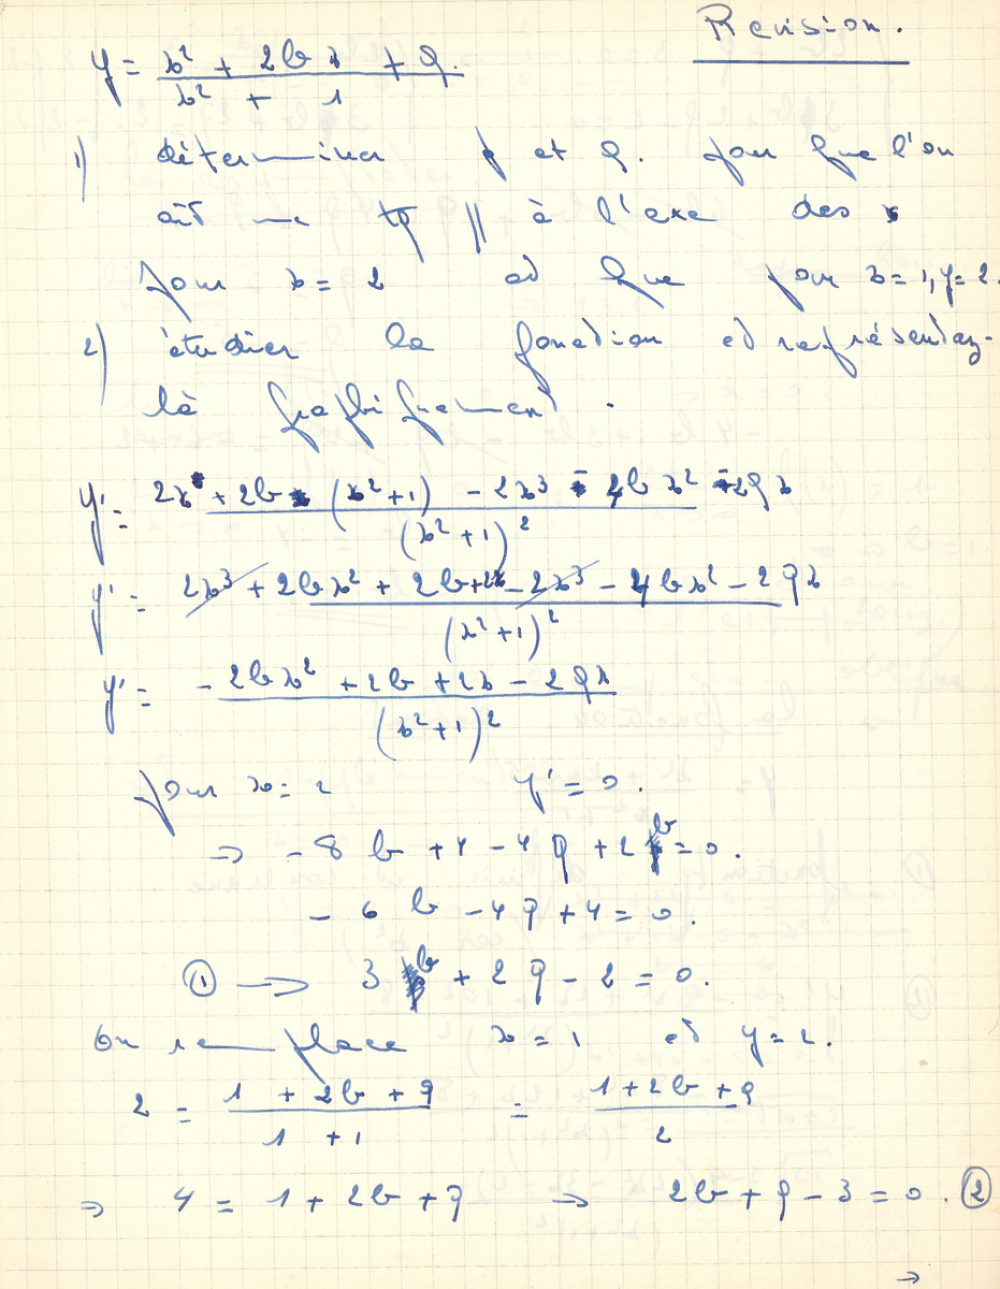 Revision.
y = x² + 2b x + q. / x² + 1
1) déterminer p et q. pour que l'on
ait une tg // à l'axe des x
pour x = 2 et que pour x = 1, y = 2.
2) étudier la fonction et représentez-
là graphiquement.
y' = 2x + 2b (x² + 1) - 2x³ - 4b x² - 2q x / (x² + 1)²
y' = 2x³ + 2bx² + 2b + 2x - 2x³ - 4bx² - 2qx / (x² + 1)²
y' = - 2bx² + 2b + 2x - 2qx / (x² + 1)²
pour x = 2 y' = 0.
⇒ - 8 b + 4 - 4 q + 2 b = 0.
- 6 b - 4 q + 4 = 0.
① → 3 b + 2 q - 2 = 0.
On remplace x = 1 et y = 2.
2 = 1 + 2b + q / 1 + 1 = 1 + 2b + q / 2
⇒ 4 = 1 + 2b + q ⇒ 2b + q - 3 = 0. ②
→